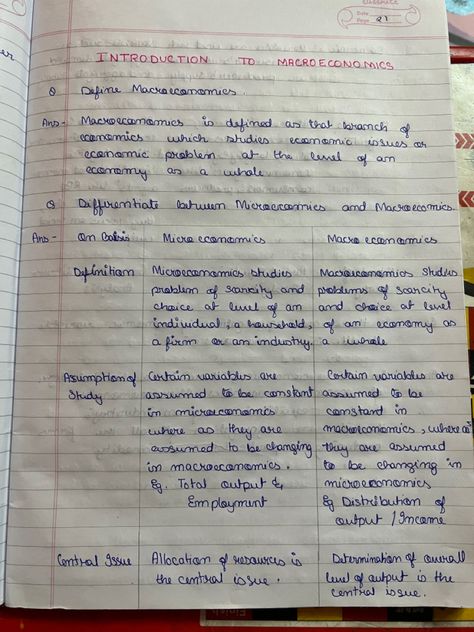 classmate
Date
Page 21
INTRODUCTION TO MACROECONOMICS
Q Define Macroeconomics.
Ans- Macroeconomics is defined as that branch of
economics which studies economic issues or
economic problem at the level of an
economy as a whole
Q Differentiate between Microeconomics and Macroeconomics.
Ans- On Basis Micro economics Macro economics
Definition Microeconomics studies Macroeconomics studies
problem of scarcity and problems of scarcity
choice at level of an and choice at level
individual, a household, of an economy as
a firm or an industry. a whole
Assumption of Certain variables are Certain variables are
Study assumed to be constant assumed to be
in microeconomics constand in
where as they are macroeconomics, where as
assumed to be changing they are assumed
in macroeconomics. to be changing in
Eg. Total output & microeconomics
Employment Eg Distribution of
output / Income
Central Issue Allocation of resources is Determination of overall
the central issue. level of output is the
central issue.